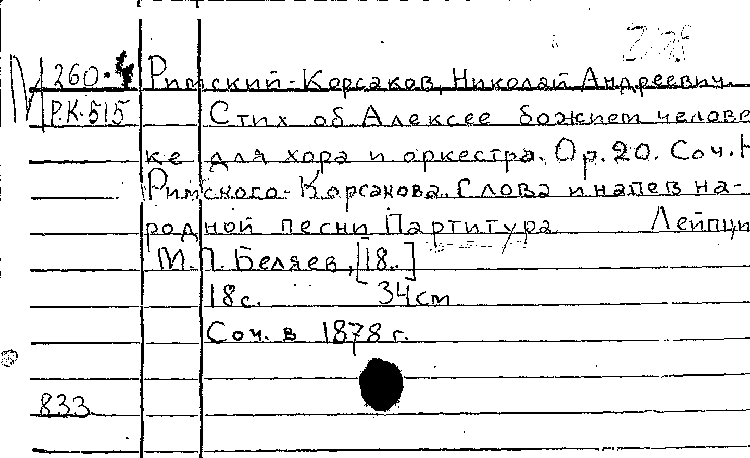 М 260.4 Римский-Корсаков, Николай Андреевич.
Р.К-515 Стих об Алексее божием челове
ке для хора и оркестра. Ор.20. Соч. Н
Римского-Корсакова. Слова и напев на-
родной песни Партитура Лейпци
М.П. Беляев, [18..]
18с. 34см
Соч. в 1878 г.
833